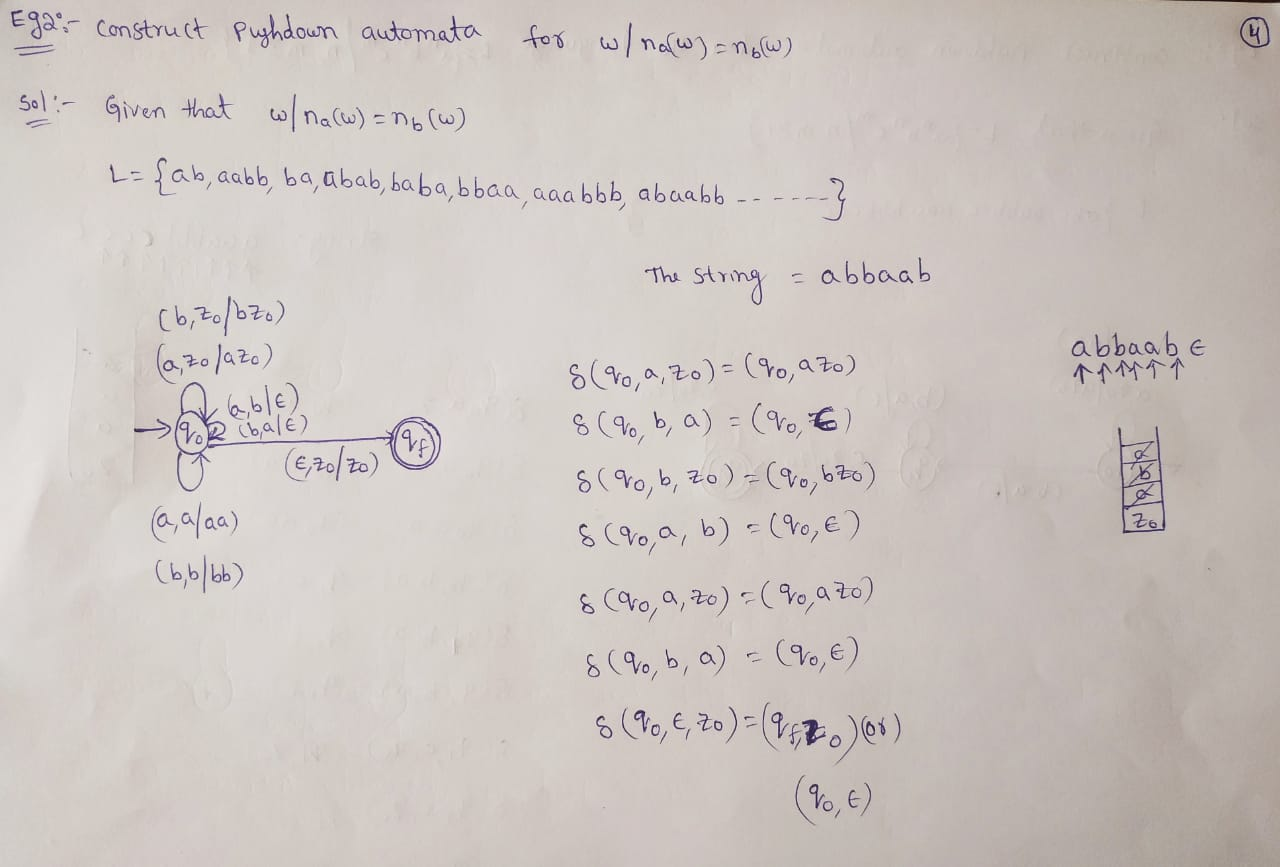 Eg2:- Construct Pushdown automata for w/na(w)=nb(w)
4
Sol:- Given that w/na(w)=nb(w)
L={ab,aabb,ba,abab,baba,bbaa,aaabbb,abaabb -------}
The String = abbaab
(b,z₀/bz₀)
(a,z₀/az₀)
(a,b/ε)
(b,a/ε)
q₀
qf
(ε,z₀/z₀)
(a,a/aa)
(b,b/bb)
δ(q₀,a,z₀)=(q₀,az₀)
δ(q₀,b,a)=(q₀,ε)
δ(q₀,b,z₀)=(q₀,bz₀)
δ(q₀,a,b)=(q₀,ε)
δ(q₀,a,z₀)=(q₀,az₀)
δ(q₀,b,a)=(q₀,ε)
δ(q₀,ε,z₀)=(qf,z₀)(or)
(q₀,ε)
abbaabε
↑↑↑↑↑↑
a
b
a
z₀